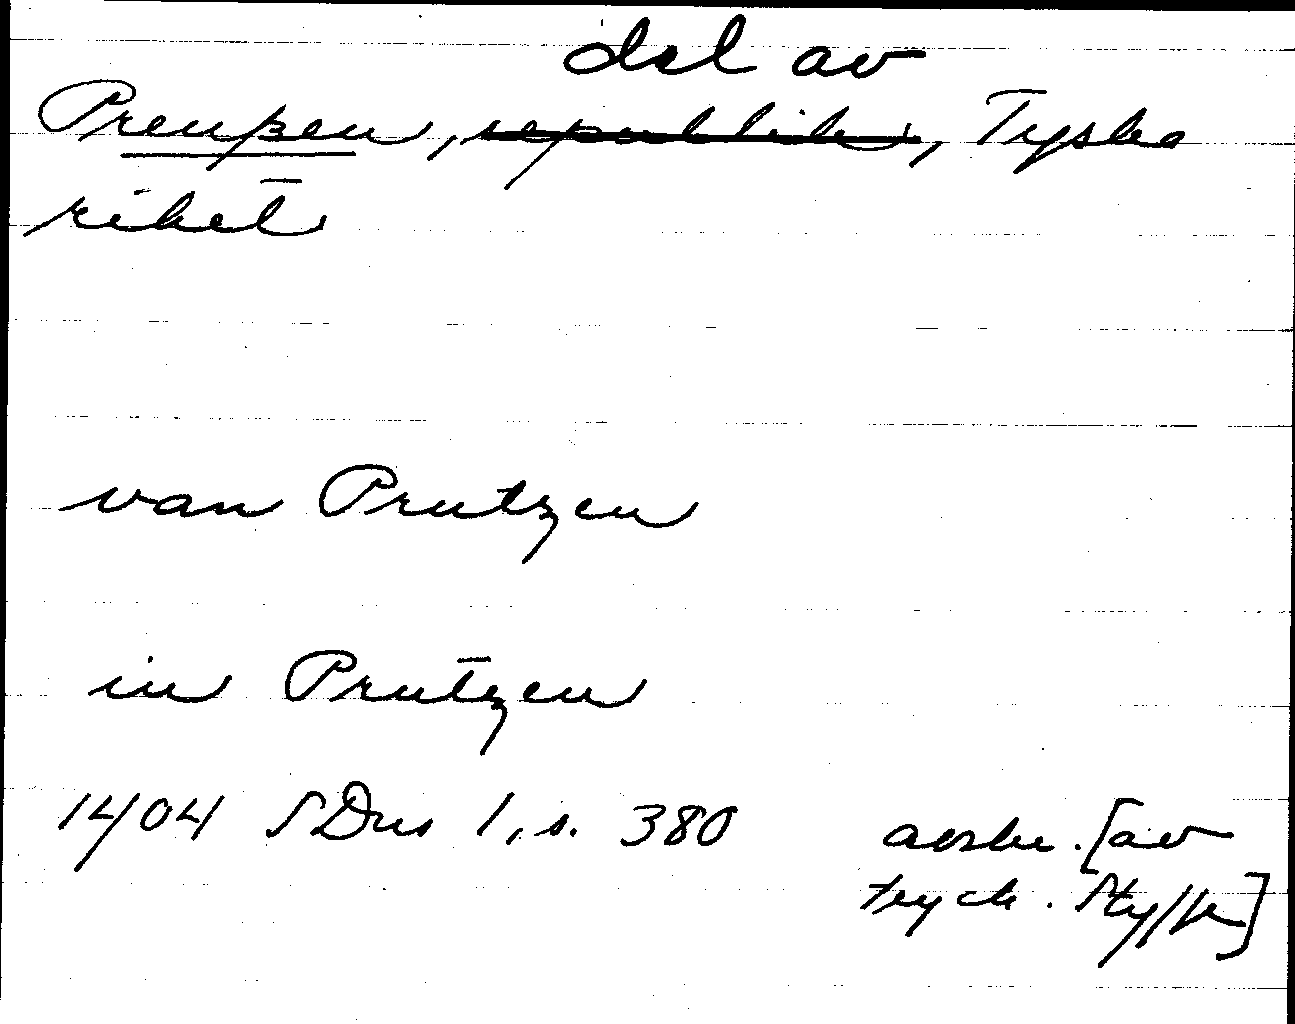 del av
Preußen, republik, Tyska
riket
van Prutzen
in Prutzen
1404 SDns 1, s. 380 avskr. [av
tryck. Styffe]